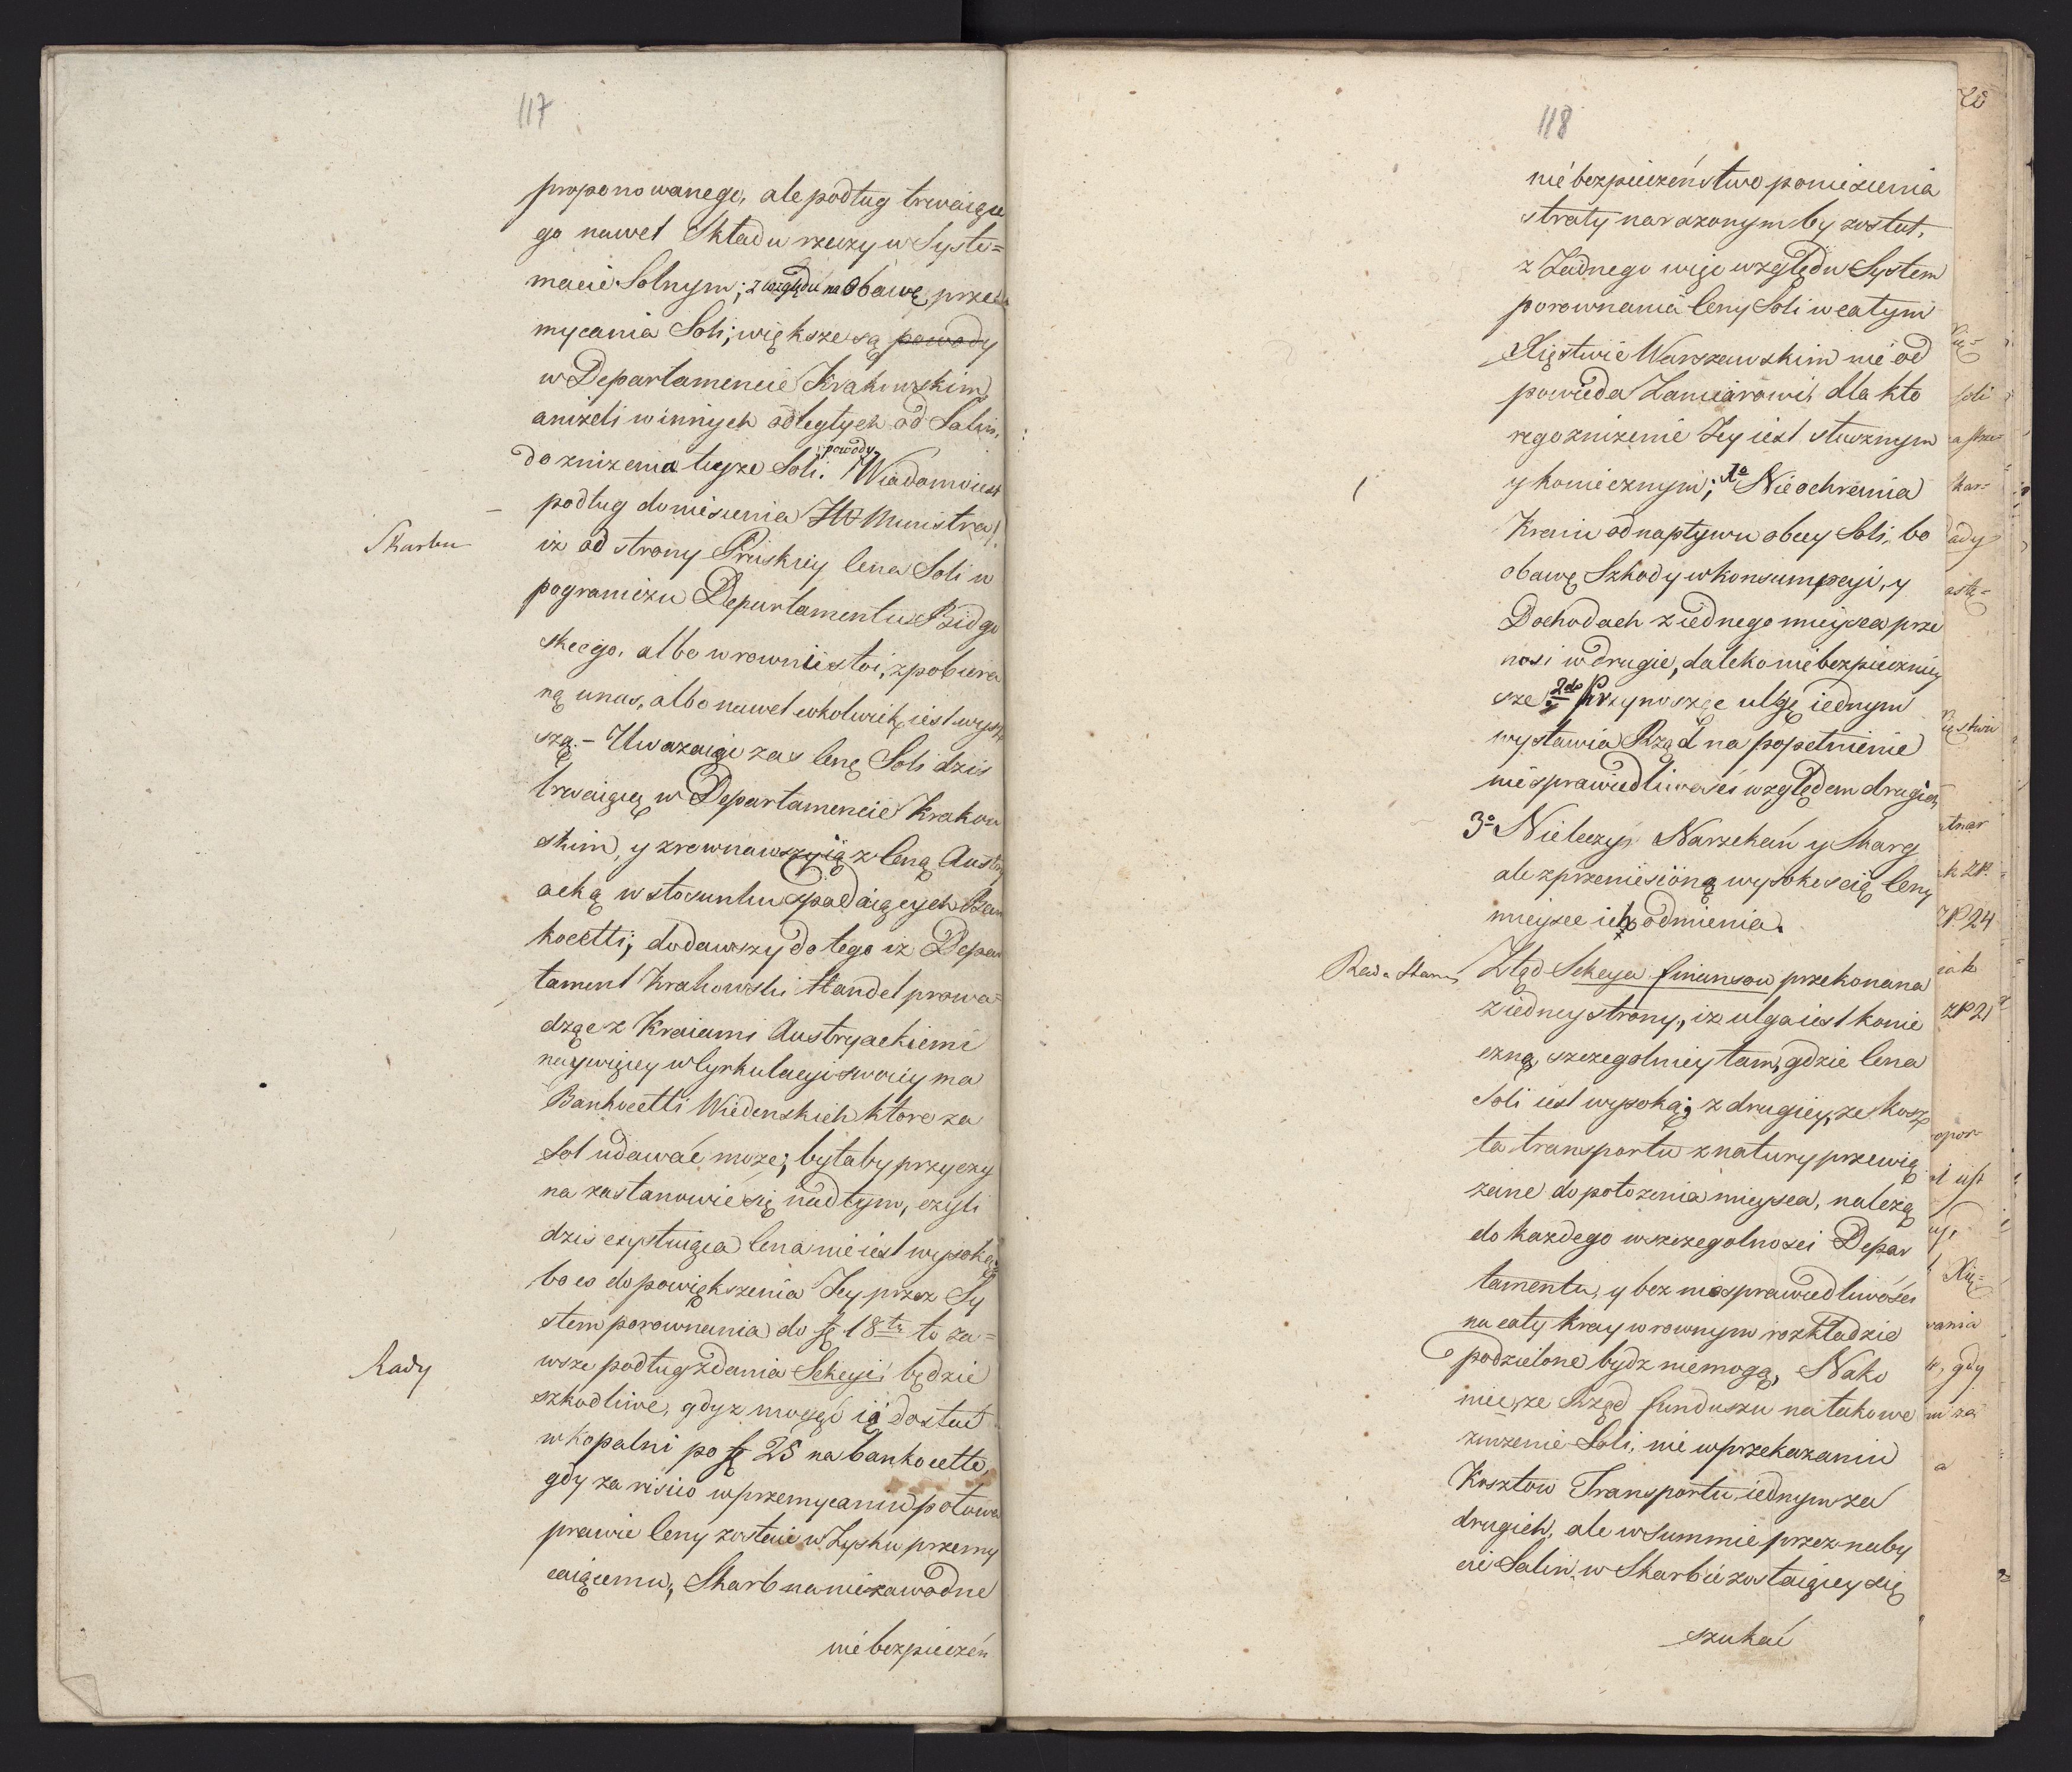 117
proponowanego, ale podług trwaiące
go nawet Składu rzeczy w Syste=
macie Solnym; z względu na Obawę prze
mycania Soli; większe są powody
w Departamencie Krakowskim,
aniżeli w innych odległych od Salin,
powody
do zniżenia teyże Soli. Wiadomo iest
podług doniesienia JW Ministra
Skarbu
iż od strony Pruskiey Cena Soli w
pograniczu Departamentu Bidgo
skiego, albo w rowni stoi, z pobiera
ną u nas, albo nawet cokolwiek iest wyż
szą. - Uważaiąc zas Cenę Soli dzis
trwaiącą w Departamencie Krakow
skim, y zrownawszy ią z Ceną Austry
acką w stosunku spadaiących Ban
kocetti; dodawszy do tego iż Depar
tament Krakowski Handel prowa=
dząc z Kraiami Austryackiemi
naywięcey w Cyrkulacyi swoiey ma
Bankocetti Wiedenskich ktore za
Sol udawać może; byłaby przyczy
na zastanowić się nad tym, czyli
dzis exystuiąca Cena nie iest wysoką;
bo co do powiększenia Jey przez Sy
stem porownania do fl 18 tu to za=
wsze podług zdania Sekcyi będzie
Rady
szkodliwe, gdyż mogąć ią dostać
w Kopalni po fl 25 na bankocetti,
gdy za risico w przemycaniu połowa
prawie Ceny zostaie w Zysku przemy
caiącemu, Skarb na niezawodne
niébezpieczeń
118
niébezpieczeństwo poniesienia
straty narażonym by został,
z Żadnego więc względu System
porownania Ceny Soli w całym
Xięstwie Warszawskim nie od
powiada Zamiarowi, dla kto
rego zniżenie Jey iest słusznym
y koniecznym; 1o Nie ochrania
Kraiu od napływu obcey Soli, bo
obawę Szkody w konsumpcyi, y
Dochodach z iednego mieysca prze
nosi w drugie, daleko niebezpieczniey
sze. 2do Przynosząc ulgę iednym
wystawia Rząd na popełnienie
niesprawiedliwości względem drugich
3o Nie leczy Narzekań y Skarg
ale z przeniesioną wysokoscią Ceny
mieysce ich odmienia.
Rada Stanu
Ztąd Sekcya finansow przekonana
z iedney strony, iż ulga iest konie
czną, szczegolniey tam, gdzie Cena
Soli iest wysoką; z drugiey, że kosz
ta transportu z natury przewią
zane do położenia mieysca, należą
do każdego w szczegolnosci Depar
tamentu, y bez niesprawiedliwości
na cały kray w rownym rozkładzie
podzielone bydz niemogą, Nako
niec, że Rząd funduszu na takowe
zniżenie Soli, nie w przekazaniu
Kosztow Transportu iednym za
drugich, ale w Summie przez naby
cie Salin w Skarbie zostaiącey się
szukać